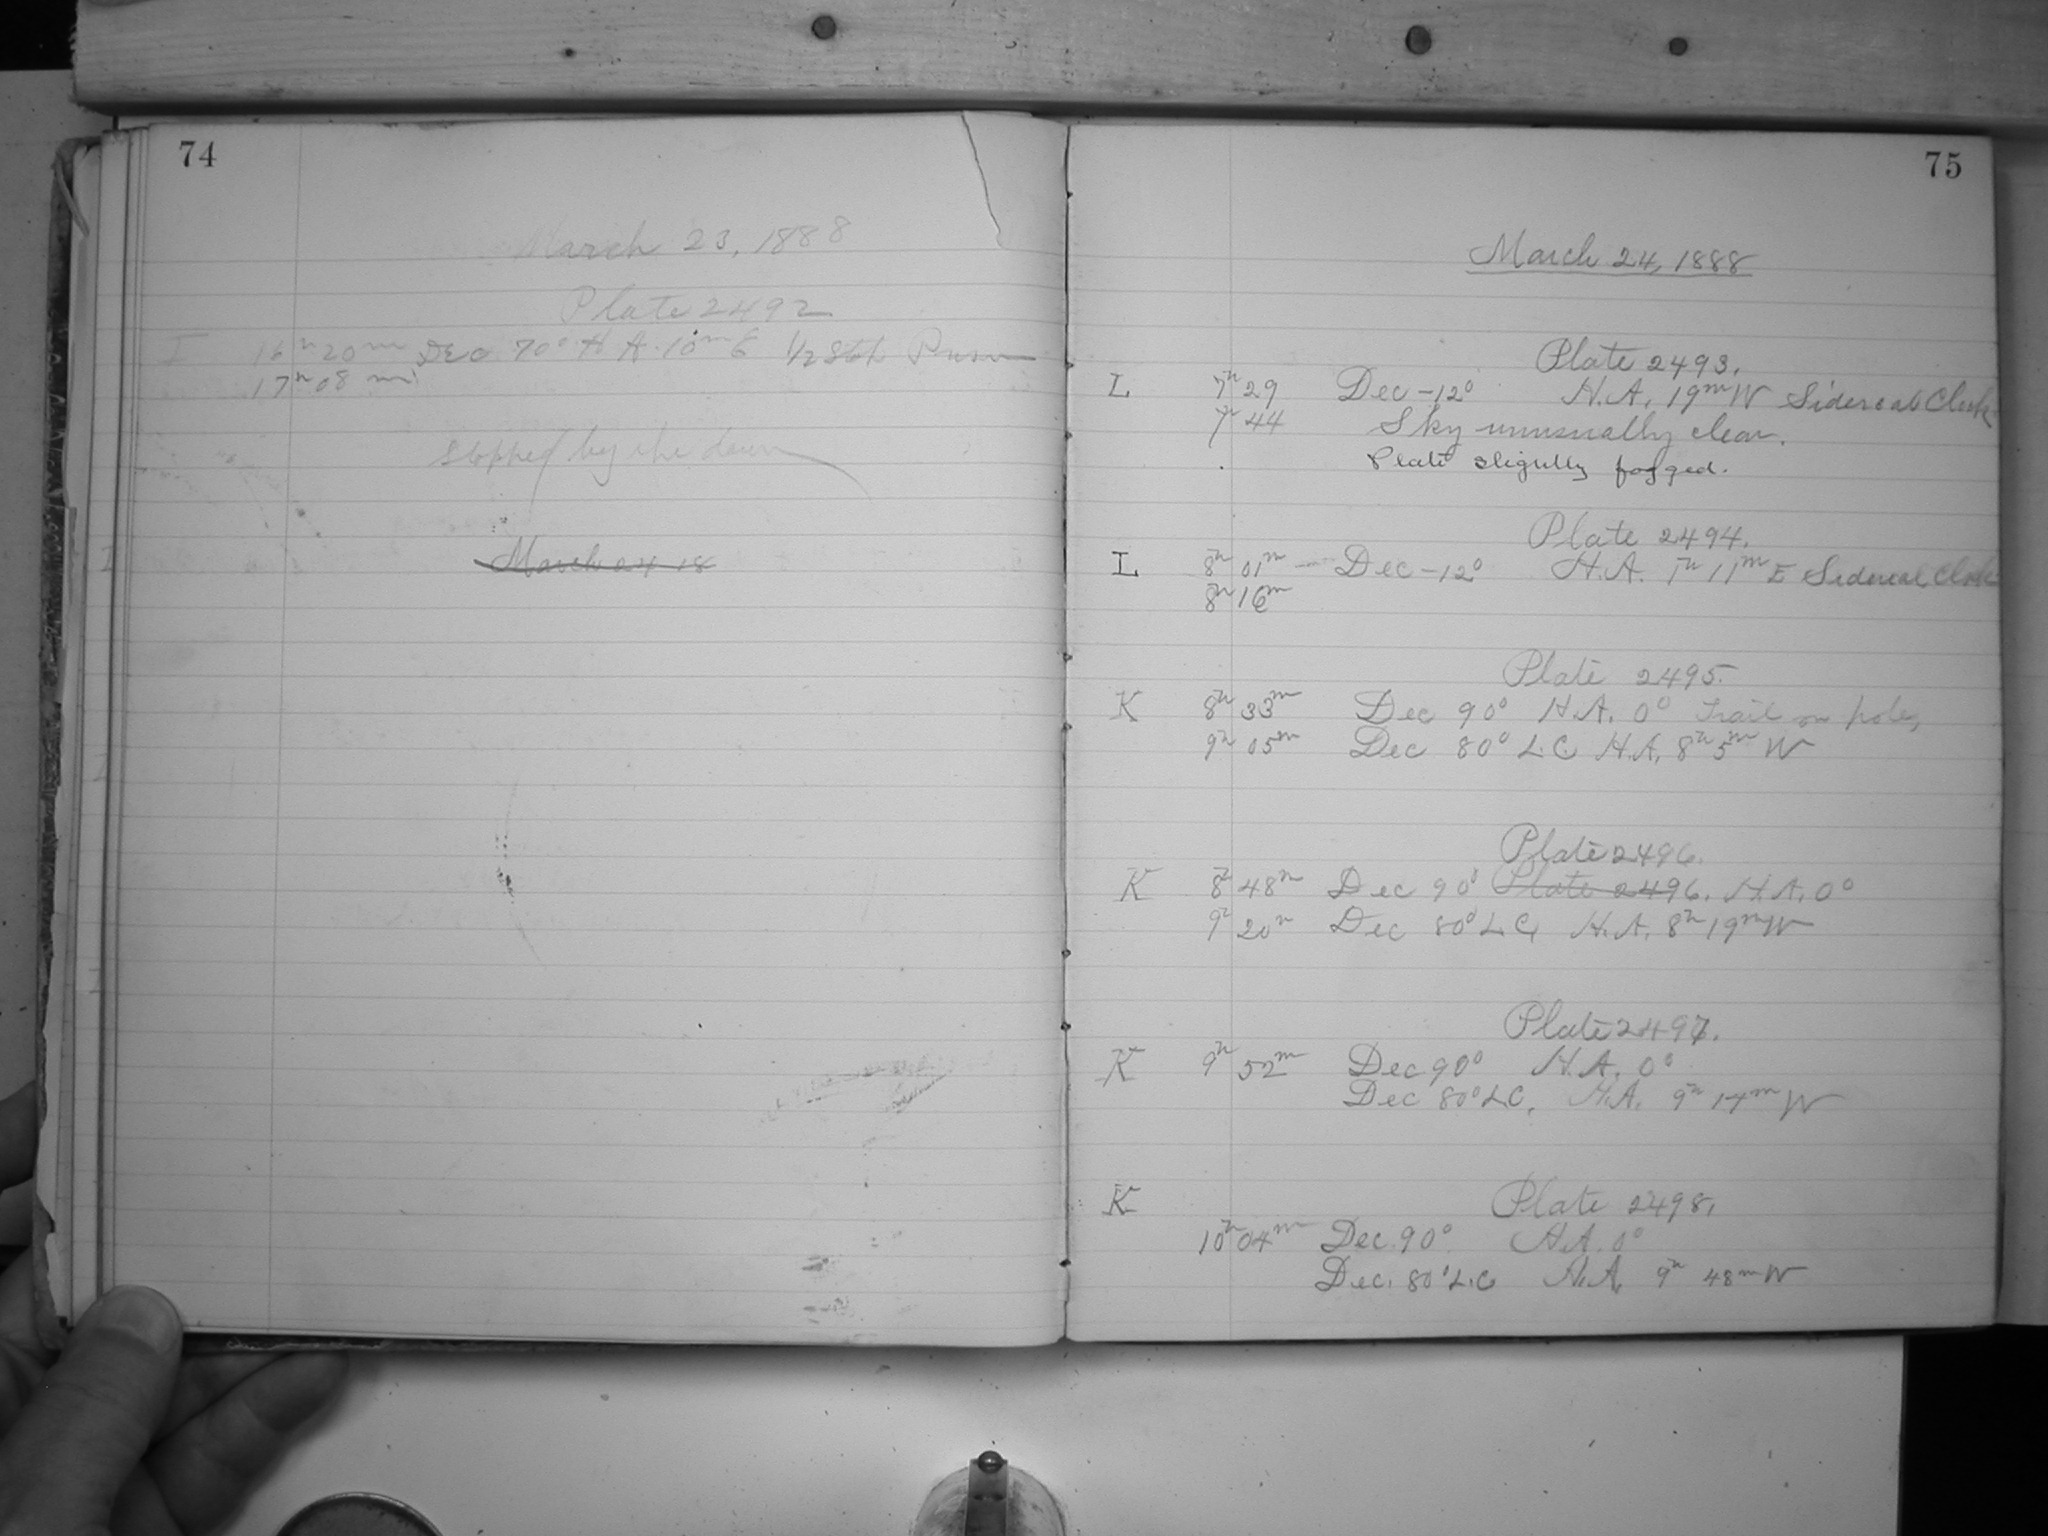 74
March 23, 1888
Plate 2492
I 16h 20m Dec 70° H A 10m E 1/2 Prism
17h 08m
Stopped by the dawn
March 24 18
75
March 24, 1888
Plate 2493.
L 7h 29 Dec -12° H.A. 19m W Sidereal Clock
7h 44 Sky unusually clear.
Plate slightly fogged.
Plate 2494.
L 8h 01m Dec -12° H.A. 1h 11m E Sidereal Clock
8h 16m
Plate 2495.
K 8h 33m Dec 90° H.A. 0° Trail on pole,
9h 05m Dec 80° L.C H.A. 8h 5m W
Plate 2496.
K 8h 48m Dec 90° Plate 2496. H.A. 0°
9h 20m Dec 80° L.C, H.A. 8h 19m W
Plate 2497.
K 9h 52m Dec 90° H.A. 0°
Dec 80° L.C, H.A. 9h 17m W
K Plate 2498,
10h 04m Dec. 90° H.A. 0°
Dec. 80° L.C H.A. 9h 48m W